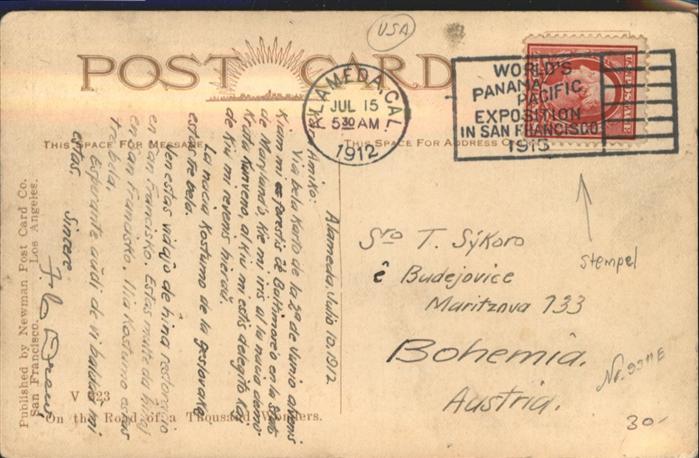 USA
POST CARD
ALAMEDA, CAL.
JUL 15
5 30 AM
1912
WORLD'S
PANAMA-
PACIFIC
EXPOSITION
IN SAN FRANCISCO
1915
THIS SPACE FOR MESSAGE
THIS SPACE FOR ADDRESS
Alameda, Julio 10, 1912
Amiko:
Via bela karto de la 2ª de Junio
Kiam mi forestis ĉe Baltimore'o en la Ŝtato
de Maryland'o, kie mi iris al la nacia
Kunveno, al kiu mi estis delegito Kaj
de kiu mi revenis hieraŭ.
La nacia Kostumo de la
estas tre bela.
Jen estas vidaĵo de ĥina restoracio
en San Francisko. Estas multe da ĥinoj
en San Francisko. Ilia Kostumo estas
bela.
Esperante aŭdi de vi baldaŭ mi
estas,
Sincere
Sro T. Sýkora
Budejovice
733
Bohemia.
Austria.
stempel
30-
Published by Newman Post Card Co.
San Francisco. Los Angeles.
V 123
On the Road of a Thousand Wonders.